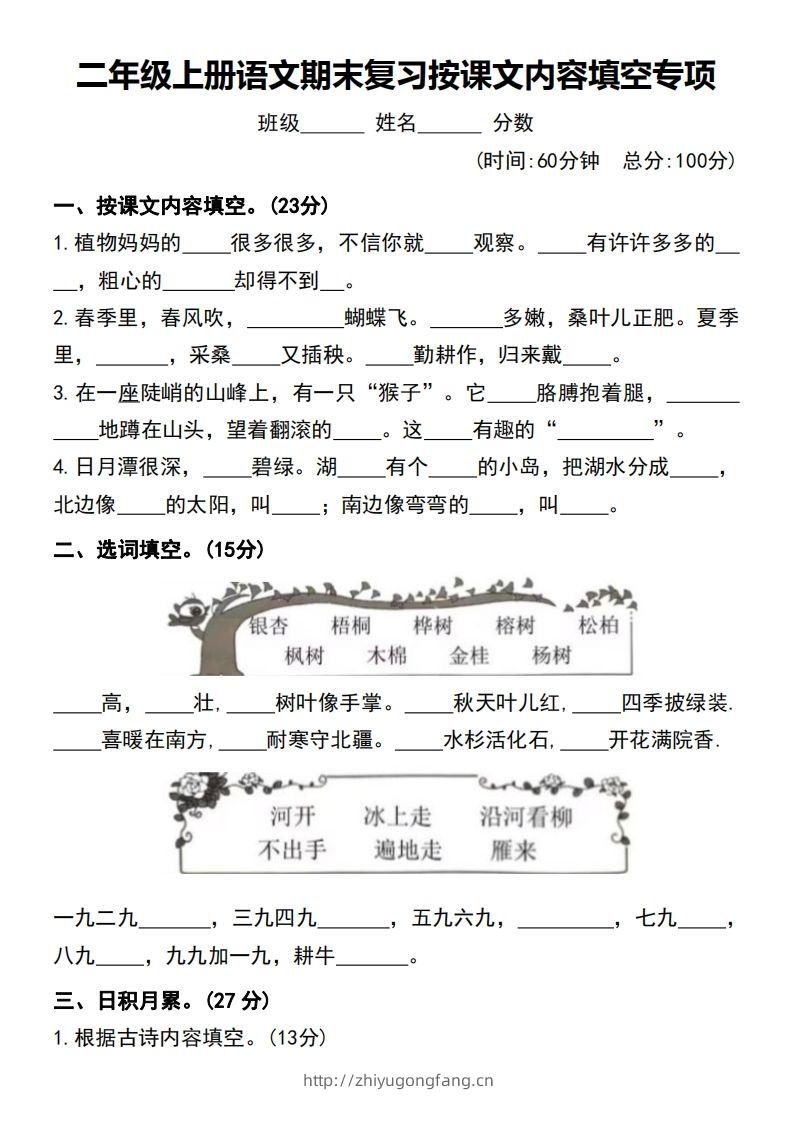 二年级上册语文期末复习按课文内容填空专项
班级______ 姓名______ 分数
(时间:60分钟 总分:100分)
一、按课文内容填空。(23分)
1.植物妈妈的____很多很多，不信你就____观察。____有许许多多的__
__，粗心的______却得不到__。
2.春季里，春风吹，________蝴蝶飞。______多嫩，桑叶儿正肥。夏季
里，______，采桑____又插秧。____勤耕作，归来戴____。
3.在一座陡峭的山峰上，有一只“猴子”。它____胳膊抱着腿，______
____地蹲在山头，望着翻滚的____。这____有趣的“________”。
4.日月潭很深，____碧绿。湖____有个____的小岛，把湖水分成____，
北边像____的太阳，叫____；南边像弯弯的____，叫____。
二、选词填空。(15分)
银杏 梧桐 桦树 榕树 松柏
枫树 木棉 金桂 杨树
____高，____壮,____树叶像手掌。____秋天叶儿红,____四季披绿装.
____喜暖在南方,____耐寒守北疆。____水杉活化石,____开花满院香.
河开 冰上走 沿河看柳
不出手 遍地走 雁来
一九二九______，三九四九______，五九六九，________，七九____，
八九____，九九加一九，耕牛______。
三、日积月累。(27 分)
1.根据古诗内容填空。(13分)
http://zhiyugongfang.cn